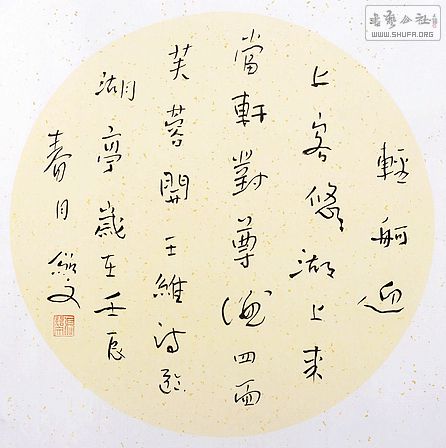 輕舸迎
上客悠々湖上来
當軒對尊酒四面
芙蓉開王維詩臨
湖亭歲在壬辰
春月紹文
书艺公社
WWW.SHUFA.ORG